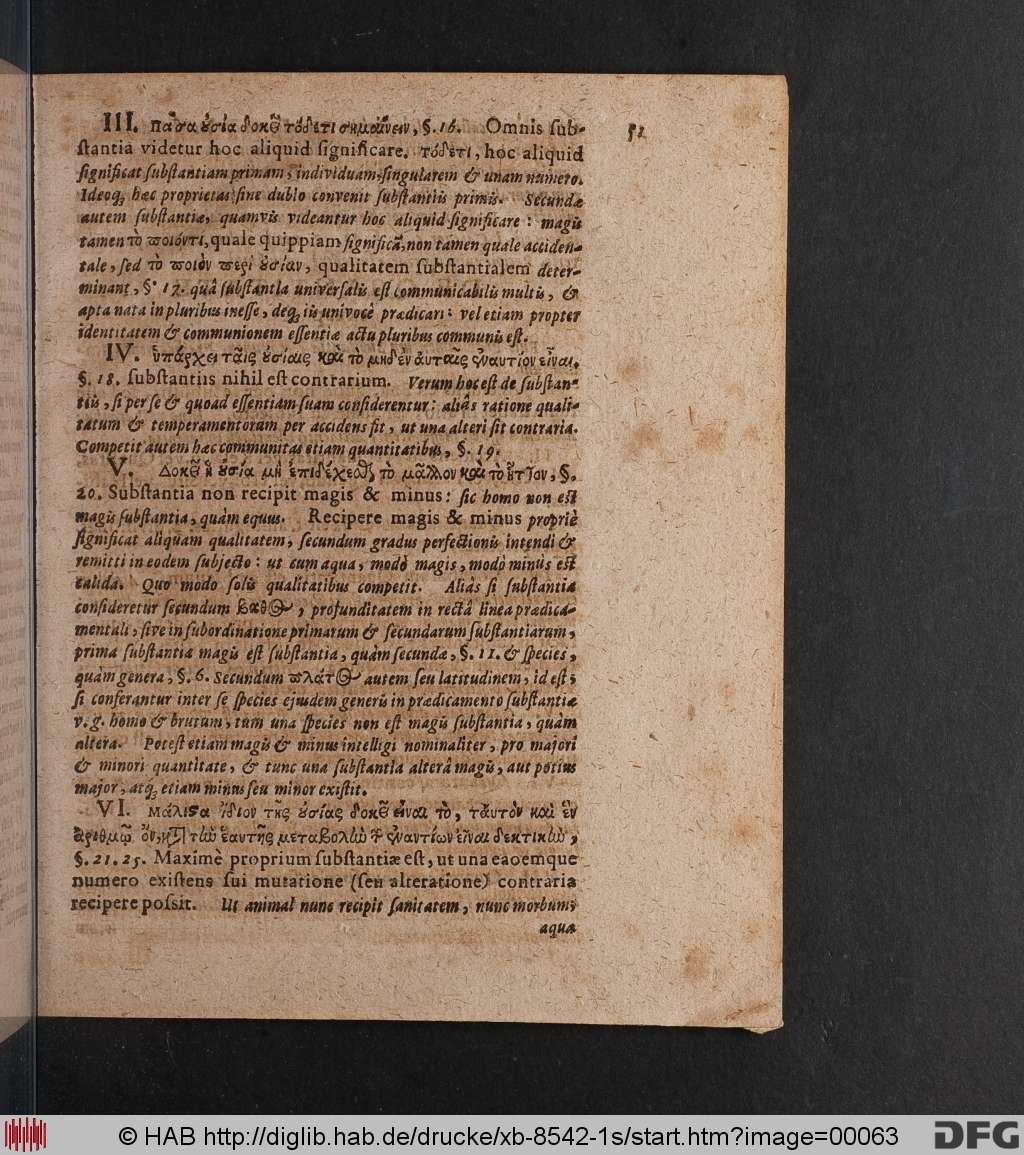 III. πᾶσα ȣ̓σία δοκεῖ τόδετι σημαίνειν, §. 16. Omnis sub-
stantia videtur hoc aliquid significare. τόδετι, hoc aliquid
significat substantiam primam, individuam, singularem & unam numero.
Ideoq; hæc proprietas sine dubio convenit substantiis primis. Secundæ
autem substantiæ, quamvis videantur hoc aliquid significare: magis
tamen τὸ ποιόντι, quale quippiam significāt, non tamen quale acciden-
tale, sed τὸ ποιὸν περὶ ȣ̓σίαν, qualitatem substantialem deter-
minant, §. 17. quâ substantia universalis est communicabilis multis, &
apta nata in pluribus inesse, deq; iis univocè prædicari: vel etiam propter
identitatem & communionem essentiæ actu pluribus communis est.
IV. ὑπάρχει ταῖς ȣ̓σίαις καὶ τὸ μηδὲν ἀυταῖς ἐναντίον εἶναι.
§. 18. substantiis nihil est contrarium. Verum hoc est de substan-
tiis, si per se & quoad essentiam suam considerentur: aliâs ratione quali-
tatum & temperamentorum per accidens fit, ut una alteri sit contraria.
Competit autem hæc communitas etiam quantitatibus, §. 19.
V. Δοκεῖ ἡ ȣ̓σία μὴ ἐπιδέχεσθαι τὸ μᾶλλον καὶ τὸ ἧττον, §.
20. Substantia non recipit magis & minus: sic homo non est
magis substantia, quàm equus. Recipere magis & minus propriè
significat aliquam qualitatem, secundum gradus perfectionis intendi &
remitti in eodem subjecto: ut cum aqua, modò magis, modò minùs est
calida. Quo modo solis qualitatibus competit. Aliàs si substantia
consideretur secundum βάθος, profunditatem in rectâ linea prædica-
mentali, sive in subordinatione primarum & secundarum substantiarum,
prima substantia magis est substantia, quàm secundæ, §. 11. & species,
quàm genera, §. 6. Secundum πλάτος autem seu latitudinem, id est,
si conferantur inter se species ejusdem generis in prædicamento substantiæ
v. g. homo & brutum, tum una species non est magis substantia, quàm
altera. Potest etiam magis & minus intelligi nominaliter, pro majori
& minori quantitate, & tunc una substantia alterâ magis, aut potius
major, atq; etiam minus seu minor existit.
VI. μάλιϛα ἴδιον τῆς ȣ̓σίας δοκεῖ εἶναι τὸ, τἀυτὸν καὶ ἓν
ἀριθμῷ ὂν, κατὰ τὴν ἑαυτῆς μεταβολὴν τῶν ἐναντίων εἶναι δεκτικὴν,
§. 21. 25. Maximè proprium substantiæ est, ut una eademque
numero existens sui mutatione (seu alteratione) contraria
recipere possit. Ut animal nunc recipit sanitatem, nunc morbum;
aqua
© HAB http://diglib.hab.de/drucke/xb-8542-1s/start.htm?image=00063
DFG